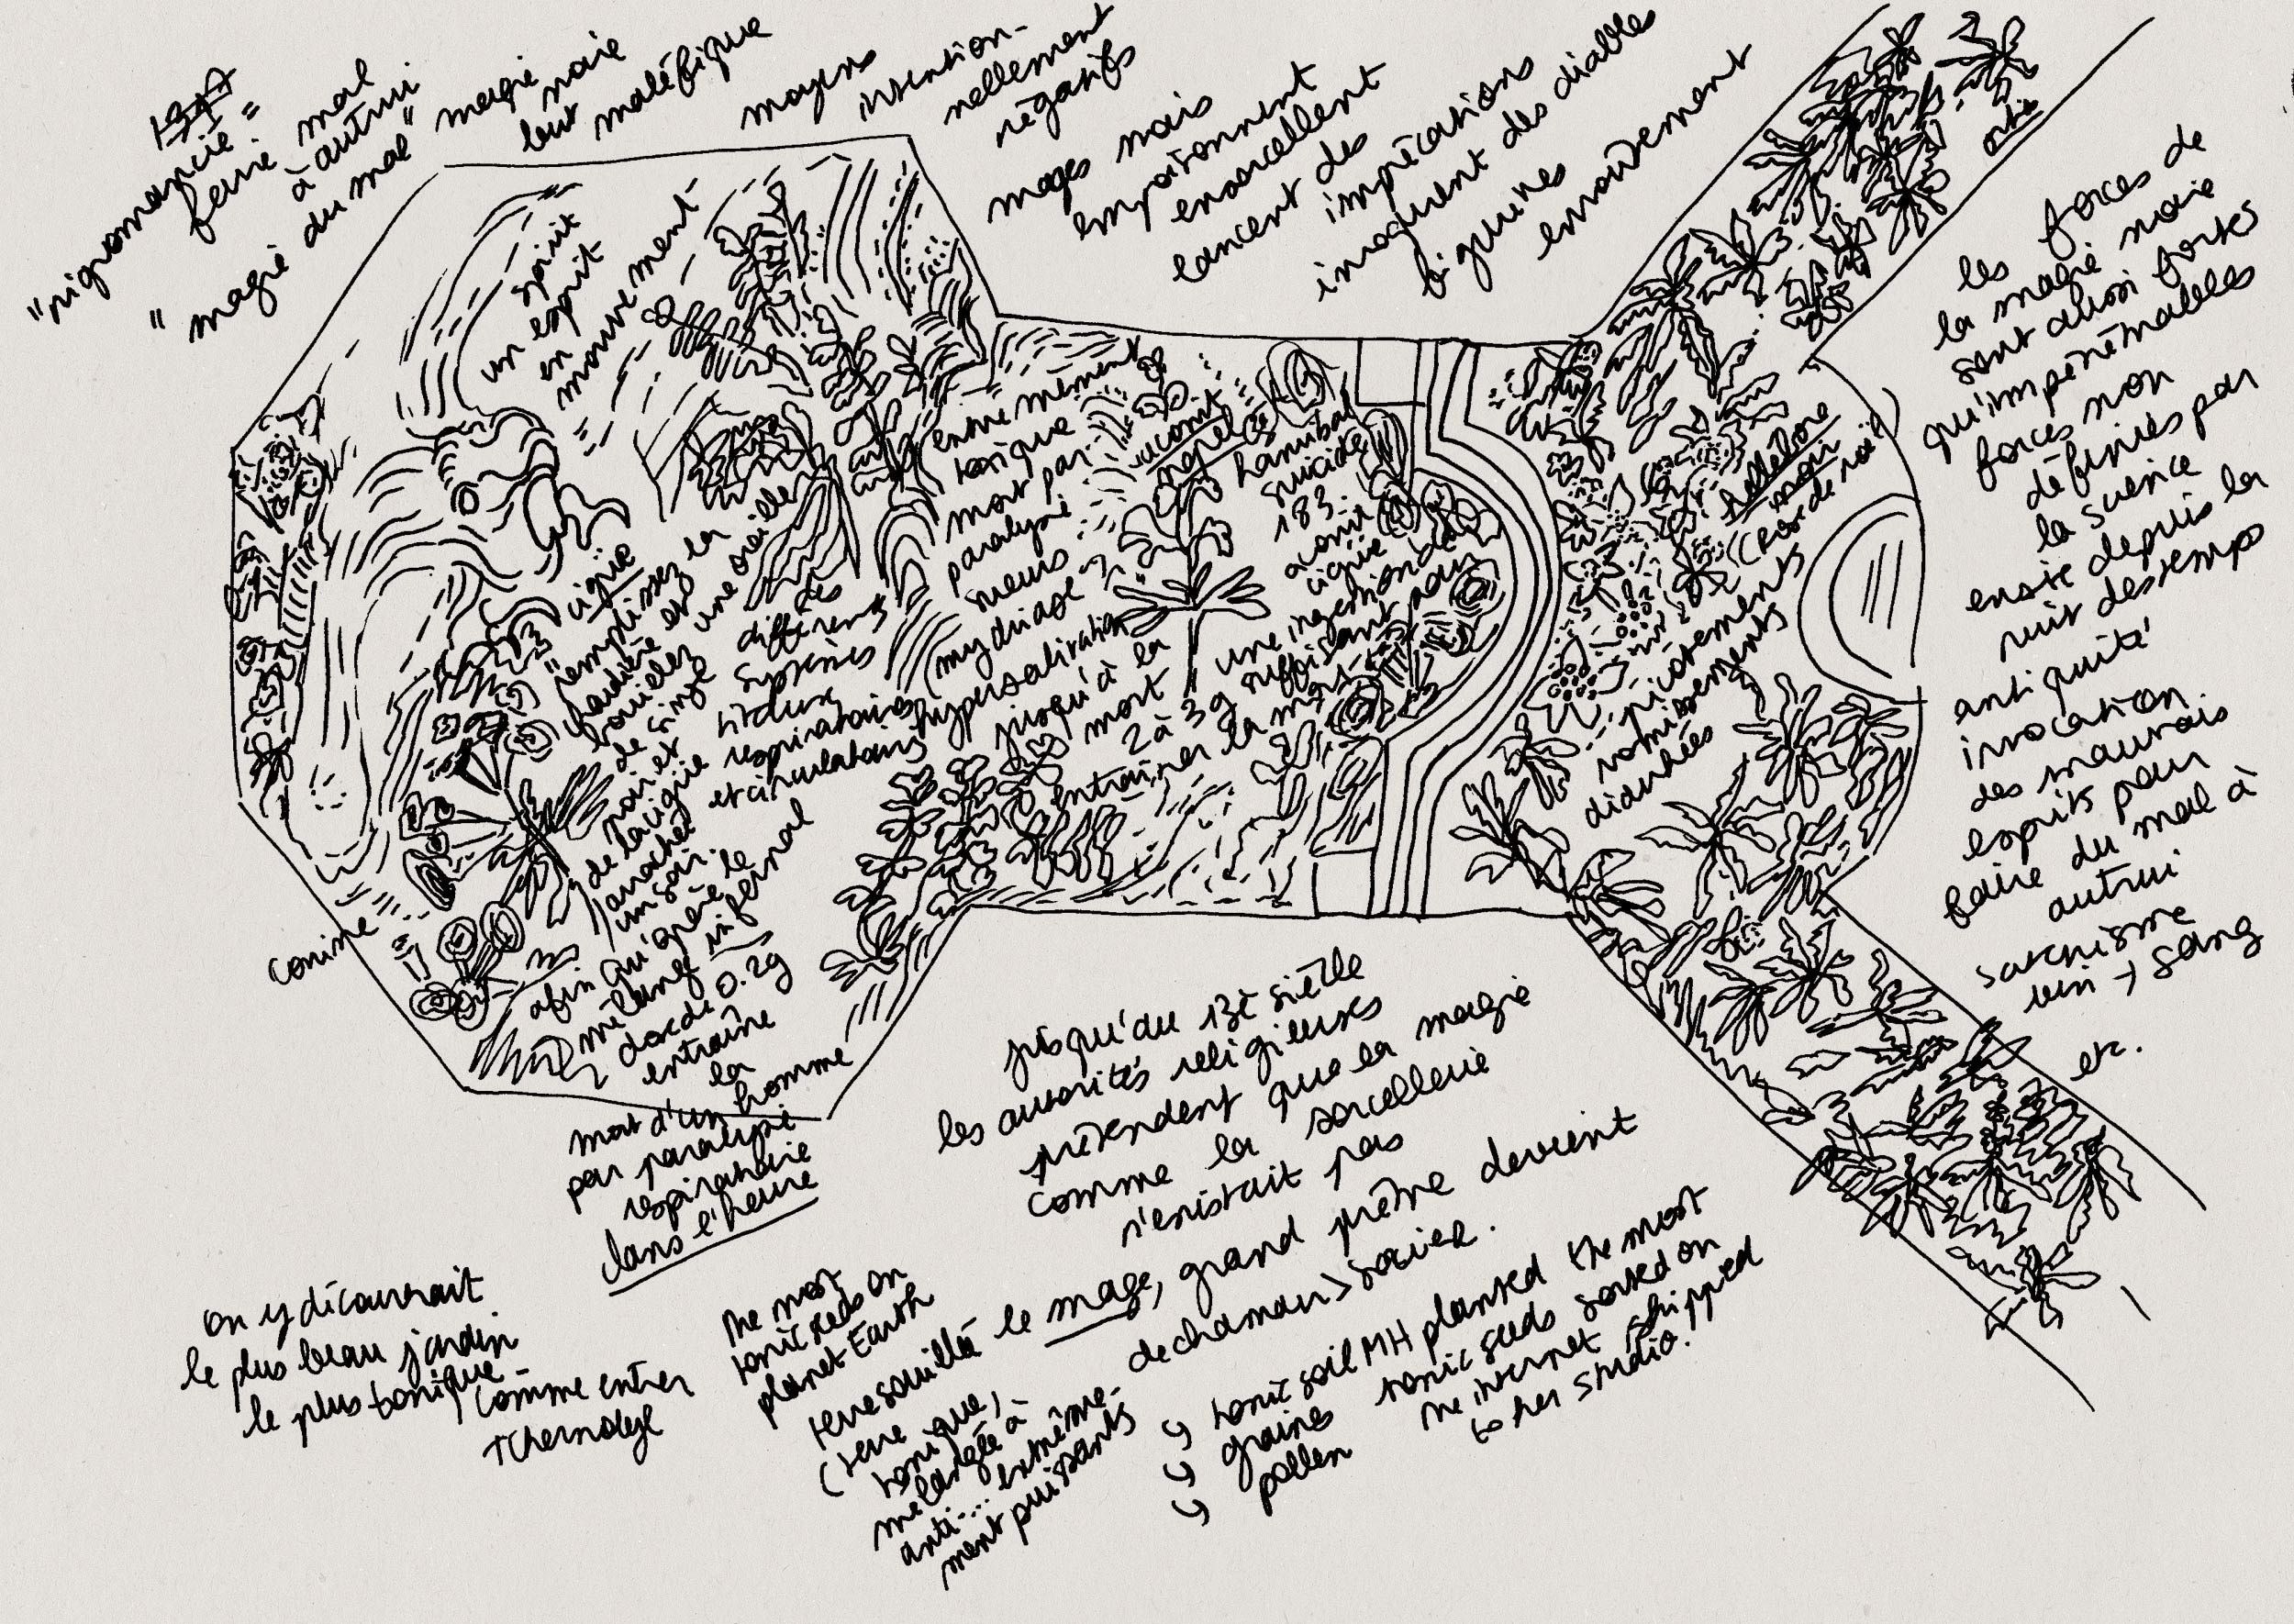 "nigromancie" =
faire mal
à autrui
"magie du mal"
magie noire
but maléfique
moyens
intention-
nellement
négatifs
mages noirs
empoisonnent
ensorcellent
lancent des
imprécations
invoquent des diables
figurines
envoûtement
ortie
les forces de
la magie noire
sont aussi fortes
qu'impénétrables
forces non
définies par
la science
existe depuis la
nuit des temps
antiquité
invocation
des mauvais
esprits pour
faire du mal à
autrui
satanisme
vin → sang
etc.
spirit
un esprit
en
mouvement
cigüe
"remplissez la
chaudière et
bouillez une oreille
de singe
noir et
de la cigüe
arrachée
un soir
afin qu'opère le
mélange infernal
des
différents
systèmes
nerveux
respiratoires
et circulatoires
conine
dose de 0.2g
entraîne
la
mort d'un homme
par paralysie
respiratoire
dans l'heure
extrêmement
toxique
mort par
paralysie
sueurs
mydriase
hypersalivation
jusqu'à la
mort
aconit
napel
hannibal
suicide
183
aconit
cigüe
une ingestion de
2 à 3g suffisant pour
entraîner la mort
hellébore
noir
(rose de noël)
picotements
vomissements
diarrhées
jusqu'au 13è siècle
les autorités religieuses
prétendent que la magie
comme la sorcellerie
n'existait pas
le mage, grand prêtre devient
de chaman > sorcier.
on y découvrait
le plus beau jardin
le plus toxique
comme entrer
Tchernobyl
the most
toxic seeds on
planet Earth
terre souillée
(terre
toxique)
mélangée à
anti... extrême-
ment puissants
↳ toxic soil MH planted the most
↳ graines toxic seeds sorted on
↳ pollen the internet shipped
to her studio.